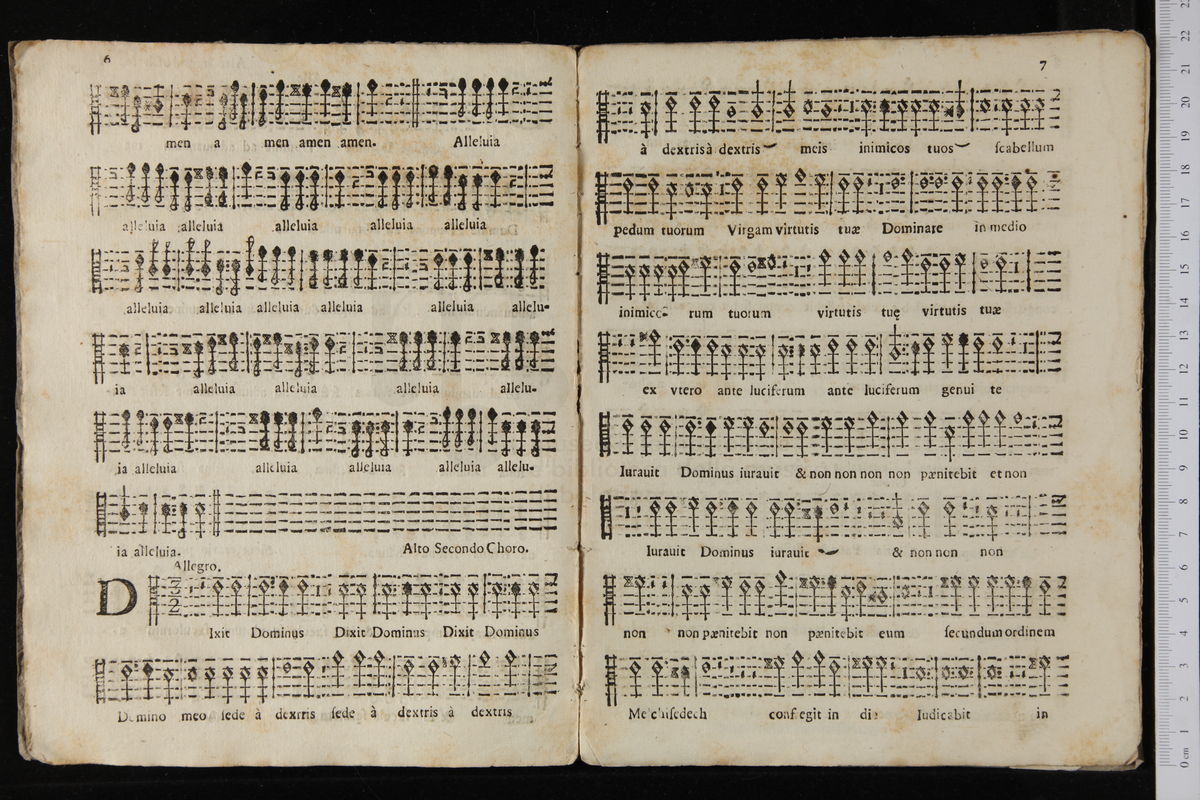 6
men a men amen amen. Alleluia
alleluia alleluia alleluia alleluia alleluia
alleluia alleluia alleluia alleluia alleluia allelu-
ia alleluia alleluia alleluia allelu-
ia alleluia alleluia alleluia alleluia allelu-
ia alleluia. Alto Secondo Choro.
Allegro.
D 3 2
Ixit Dominus Dixit Dominus Dixit Dominus
Domino meo sede à dextris sede à dextris à dextris
7
à dextris à dextris meis inimicos tuos scabellum
pedum tuorum Virgam virtutis tuæ Dominare in medio
inimico- rum tuorum virtutis tuę virtutis tuæ
ex vtero ante luciferum ante luciferum genui te
Iurauit Dominus iurauit & non non non non pænitebit et non
Iurauit Dominus iurauit & non non non
non non pænitebit non pænitebit eum secundum ordinem
Melchisedech confregit in die Iudicabit in
23
22
21
20
19
18
17
16
15
14
13
12
11
10
9
8
7
6
5
4
3
2
1
0 cm